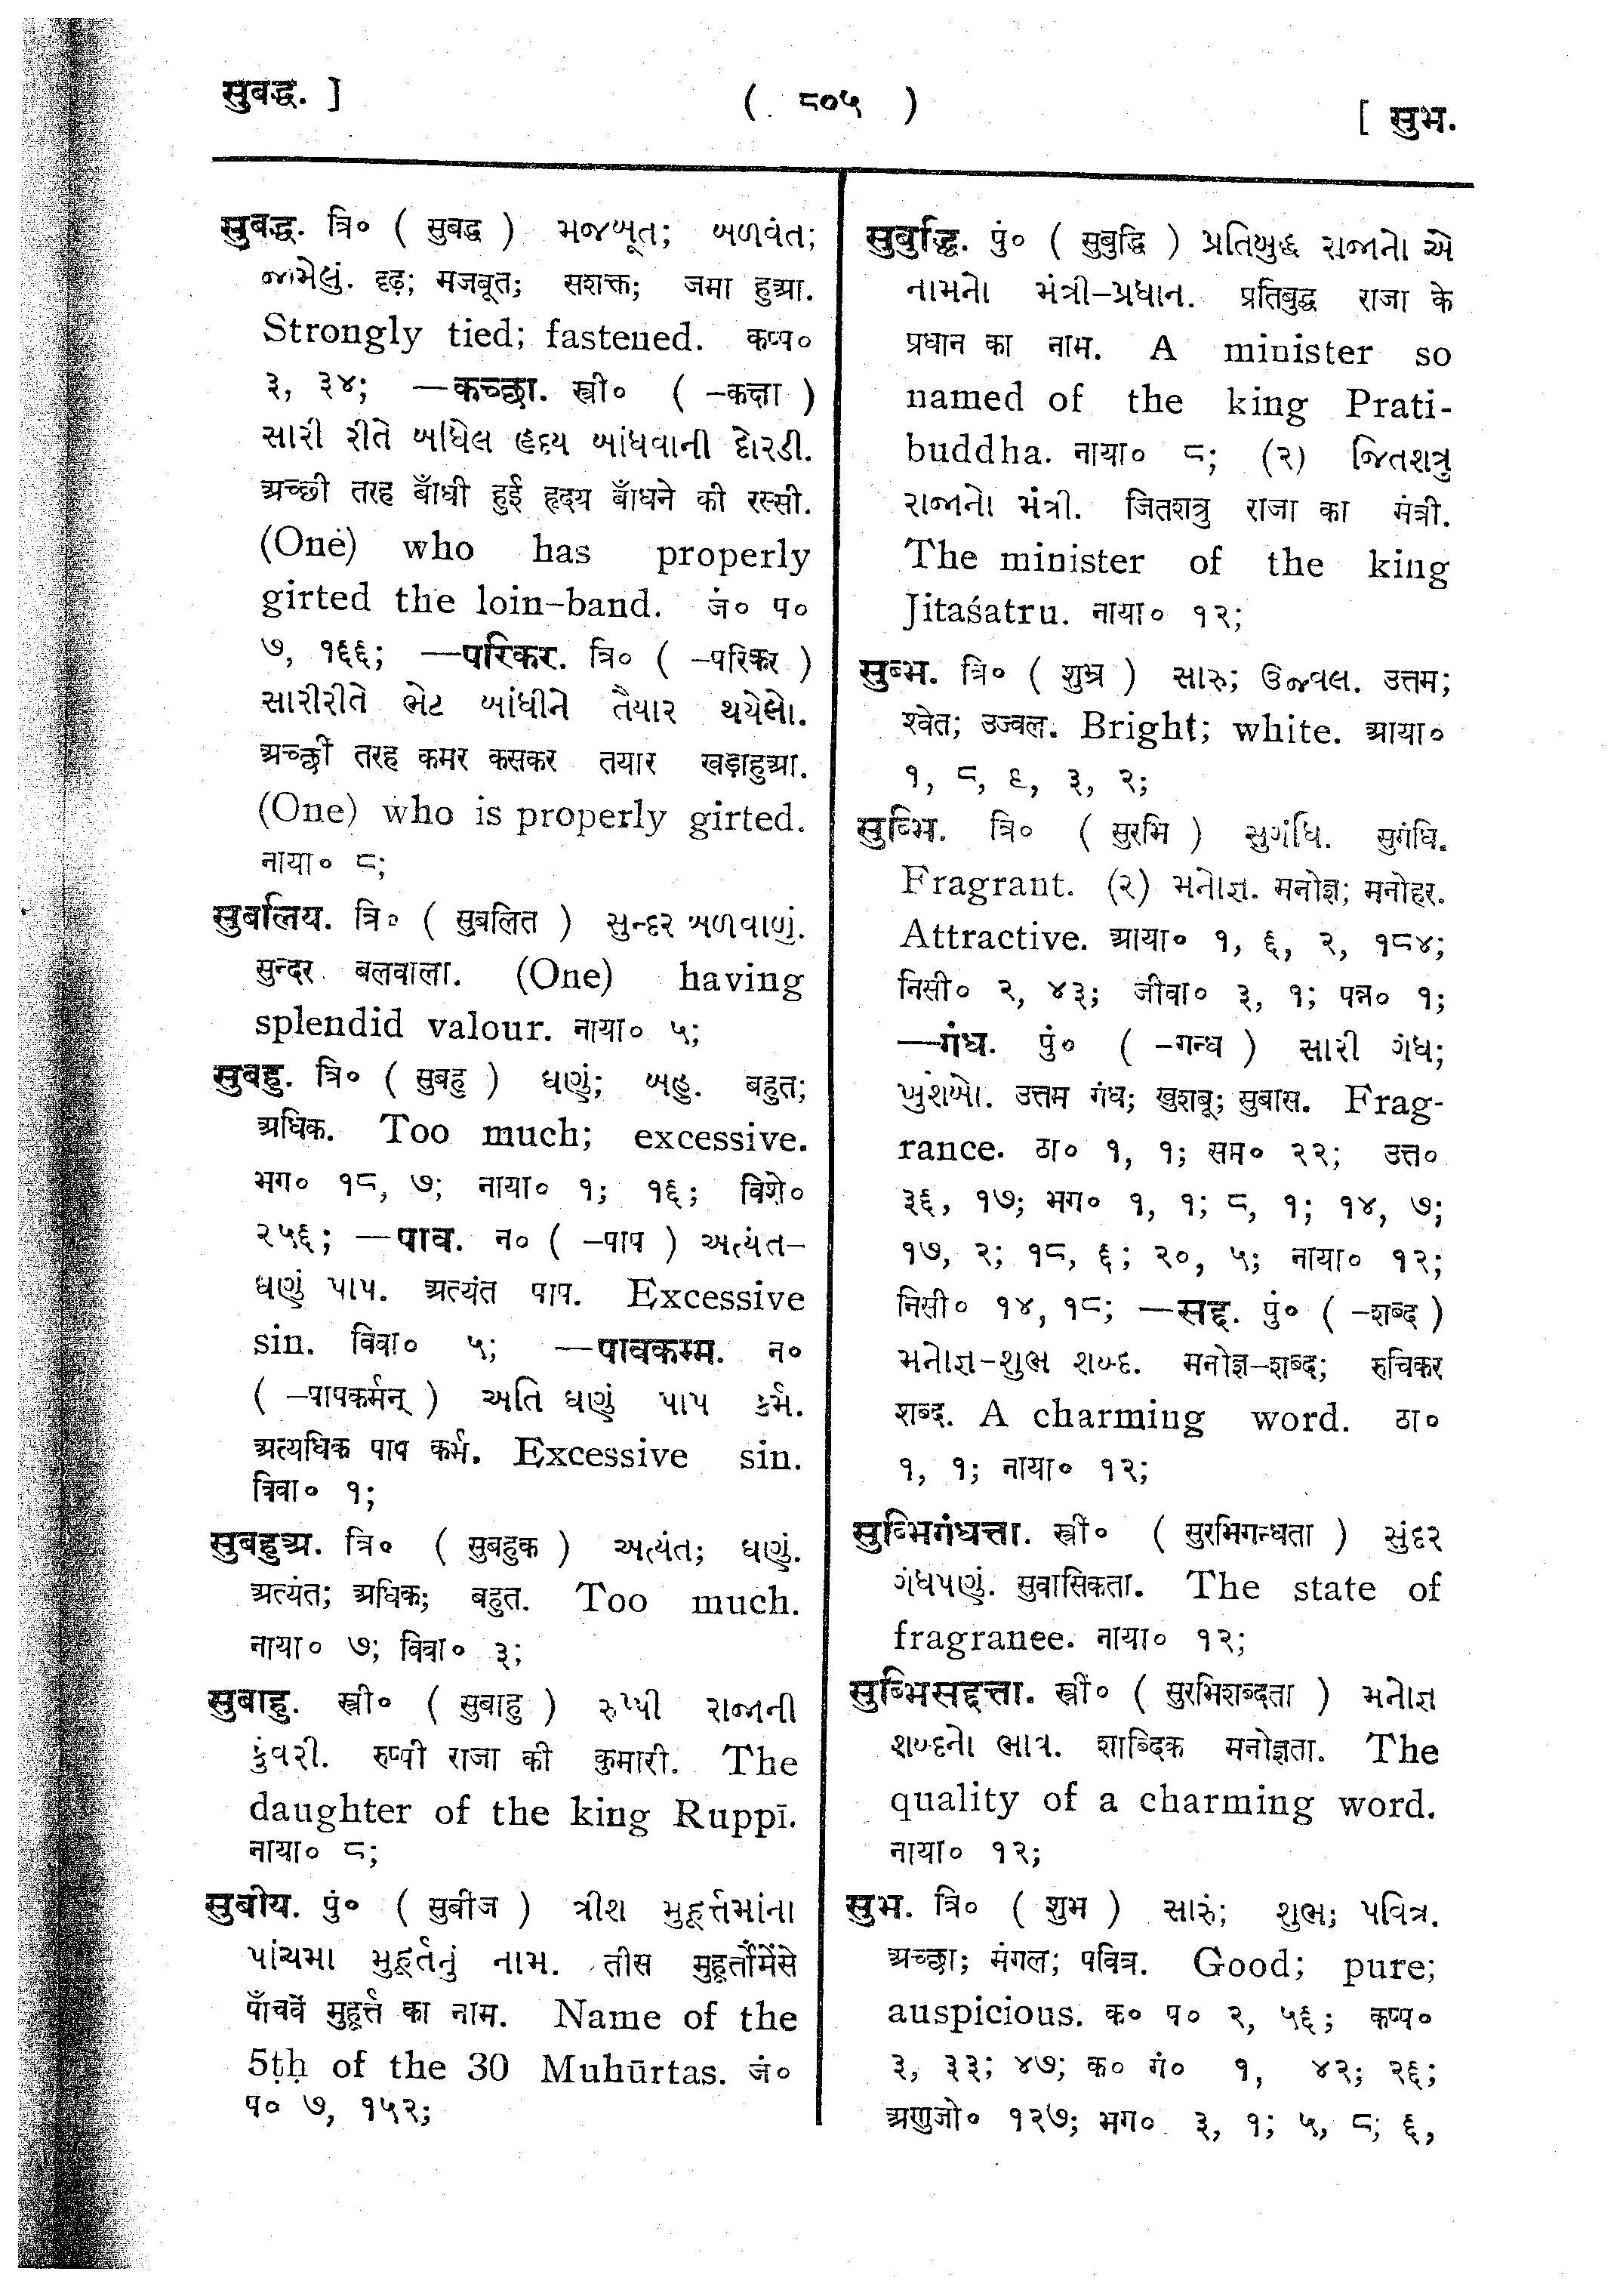 सुबद्ध. ]
( ८०५ )
[ सुभ.
सुबद्ध. त्रि० ( सुबद्ध ) મજબૂત; બળવંત;
જામેલું. दृढ़; मजबूत; सशक्त; जमा हुआ.
Strongly tied; fastened. कप्प०
३, ३४; —कच्छा. स्त्री० ( -कक्षा )
સારી રીતે બાંધેલ હૃદય બાંધવાની દોરડી.
अच्छी तरह बाँधी हुई हृदय बाँधने की रस्सी.
(One) who has properly
girted the loin-band. जं० प०
७, १६६; —परिकर. त्रि० ( -परिकर )
સારીરીતે ભેટ બાંધીને તૈયાર થયેલો.
अच्छी तरह कमर कसकर तयार खड़ाहुआ.
(One) who is properly girted.
नाया० ८;
सुबलिय. त्रि० ( सुबलित ) સુન્દર બળવાળું.
सुन्दर बलवाला. (One) having
splendid valour. नाया० ५;
सुबहु. त्रि० ( सुबहु ) ઘણું; બહુ. बहुत;
अधिक. Too much; excessive.
भग० १८, ७; नाया० १; १६; विशे०
२५६; —पाव. न० ( -पाप ) અત્યંત-
ઘણું પાપ. अत्यंत पाप. Excessive
sin. विवा० ५; —पावकम्म. न०
( -पापकर्मन् ) અતિ ઘણું પાપ કર્મ.
अत्यधिक पाप कर्म. Excessive sin.
विवा० १;
सुबहुअ. त्रि० ( सुबहुक ) અત્યંત; ઘણું.
अत्यंत; अधिक; बहुत. Too much.
नाया० ७; विवा० ३;
सुबाहु. स्त्री० ( सुबाहु ) રુપ્પી રાજાની
કુંવરી. रुप्पी राजा की कुमारी. The
daughter of the king Ruppī.
नाया० ८;
सुबीय. पुं० ( सुबीज ) ત્રીશ મુહૂર્ત્તમાંના
પાંચમા મુહૂર્તનું નામ. तीस मुहूर्तोंमेंसे
पाँचवें मुहूर्त्त का नाम. Name of the
5ṭḥ of the 30 Muhūrtas. जं०
प० ७, १५२;
सुबुद्धि. पुं० ( सुबुद्धि ) પ્રતિબુદ્ધ રાજાનો એ
નામનો મંત્રી-પ્રધાન. प्रतिबुद्ध राजा के
प्रधान का नाम. A minister so
named of the king Prati-
buddha. नाया० ८; (२) જિતશત્રુ
રાજાનો મંત્રી. जितशत्रु राजा का मंत्री.
The minister of the king
Jitaśatru. नाया० १२;
सुब्भ. त्रि० ( शुभ्र ) સારુ; ઉજવલ. उत्तम;
श्वेत; उज्वल. Bright; white. आया०
१, ८, ६, ३, २;
सुब्भि. त्रि० ( सुरभि ) સુગંધિ. सुगंधि.
Fragrant. (२) મનોજ્ઞ. मनोज्ञ; मनोहर.
Attractive. आया० १, ६, २, १८४;
निसी० २, ४३; जीवा० ३, १; पन्न० १;
—गंध. पुं० ( -गन्ध ) સારી ગંધ;
ખુશબો. उत्तम गंध; खुशबू; सुबास. Frag-
rance. ठा० १, १; सम० २२; उत्त०
३६, १७; भग० १, १; ८, १; १४, ७;
१७, २; १८, ६; २०, ५; नाया० १२;
निसी० १४, १८; —सद्द. पुं० ( -शब्द )
મનોજ્ઞ-શુભ શબ્દ. मनोज्ञ-शब्द; रुचिकर
शब्द. A charming word. ठा०
१, १; नाया० १२;
सुब्भिगंधत्ता. स्त्री० ( सुरभिगन्धता ) સુંદર
ગંધપણું. सुवासिकता. The state of
fragranee. नाया० १२;
सुब्भिसद्दत्ता. स्त्री० ( सुरभिशब्दता ) મનોજ્ઞ
શબ્દનો ભાવ. शाब्दिक मनोज्ञता. The
quality of a charming word.
नाया० १२;
सुभ. त्रि० ( शुभ ) સારું; શુભ; પવિત્ર.
अच्छा; मंगल; पवित्र. Good; pure;
auspicious. क० प० २, ५६; कप्प०
३, ३३; ४७; क० गं० १, ४२; २६;
अणुजो० १२७; भग० ३, १; ५, ८; ६,